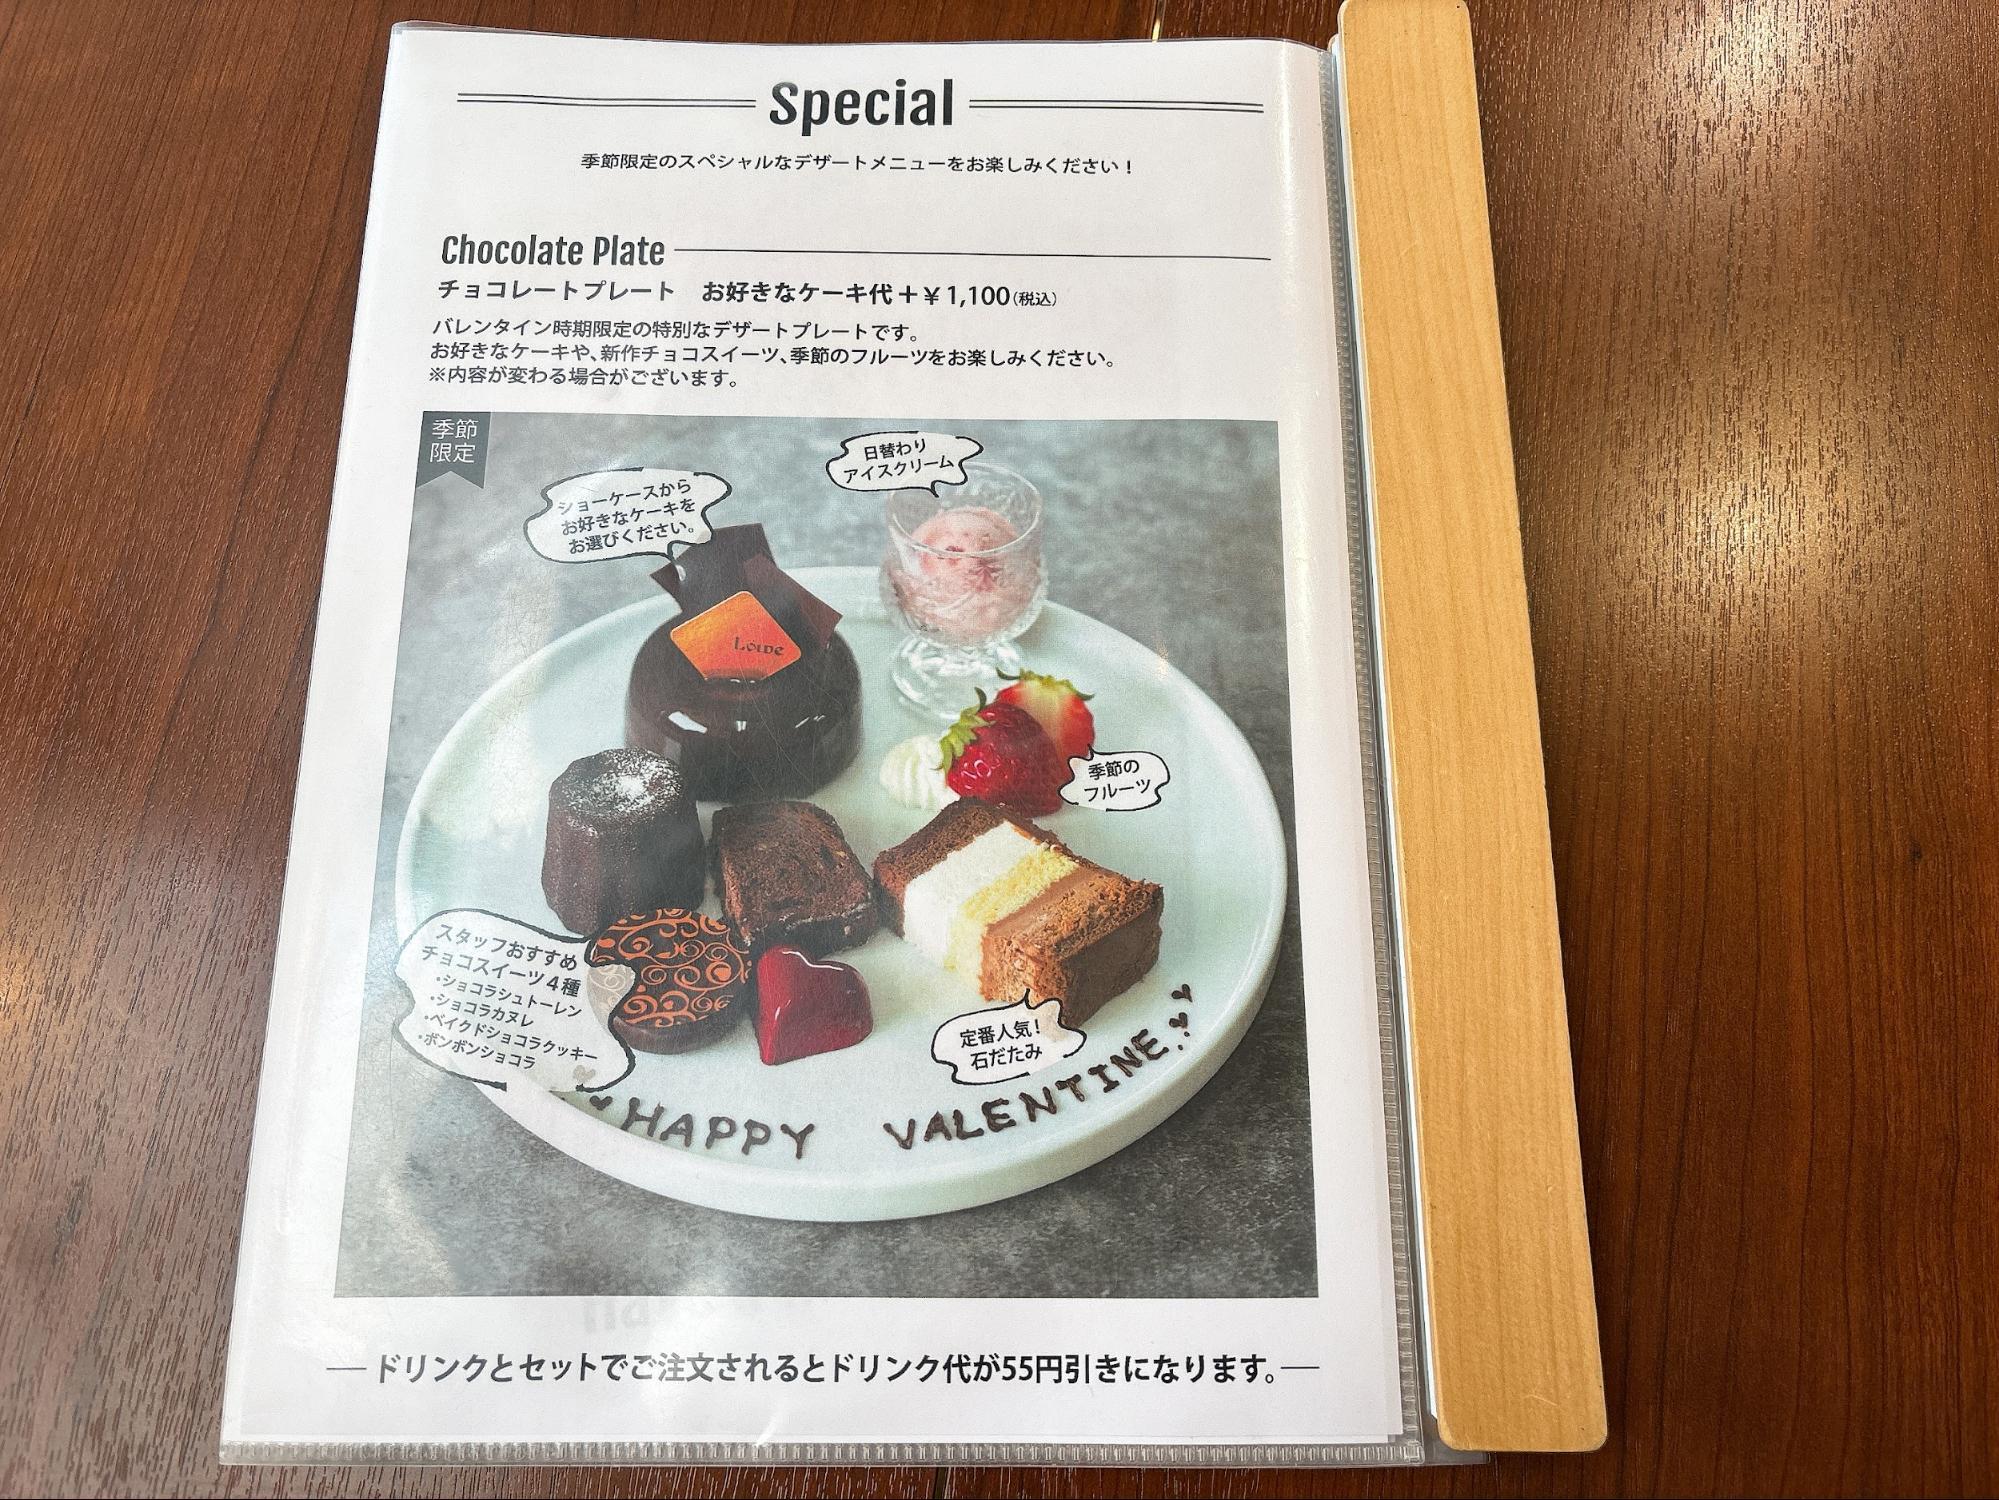 Special
季節限定のスペシャルなデザートメニューをお楽しみください！
Chocolate Plate
チョコレートプレート　お好きなケーキ代＋￥1,100(税込)
バレンタイン時期限定の特別なデザートプレートです。
お好きなケーキや、新作チョコスイーツ、季節のフルーツをお楽しみください。
※内容が変わる場合がございます。
季節
限定
日替わり
アイスクリーム
ショーケースから
お好きなケーキを
お選びください。
Löwe
季節の
フルーツ
スタッフおすすめ
チョコスイーツ４種
・ショコラシュトーレン
・ショコラカヌレ
・ベイクドショコラクッキー
・ボンボンショコラ
定番人気！
石だたみ
HAPPY VALENTINE
ドリンクとセットでご注文されるとドリンク代が55円引きになります。